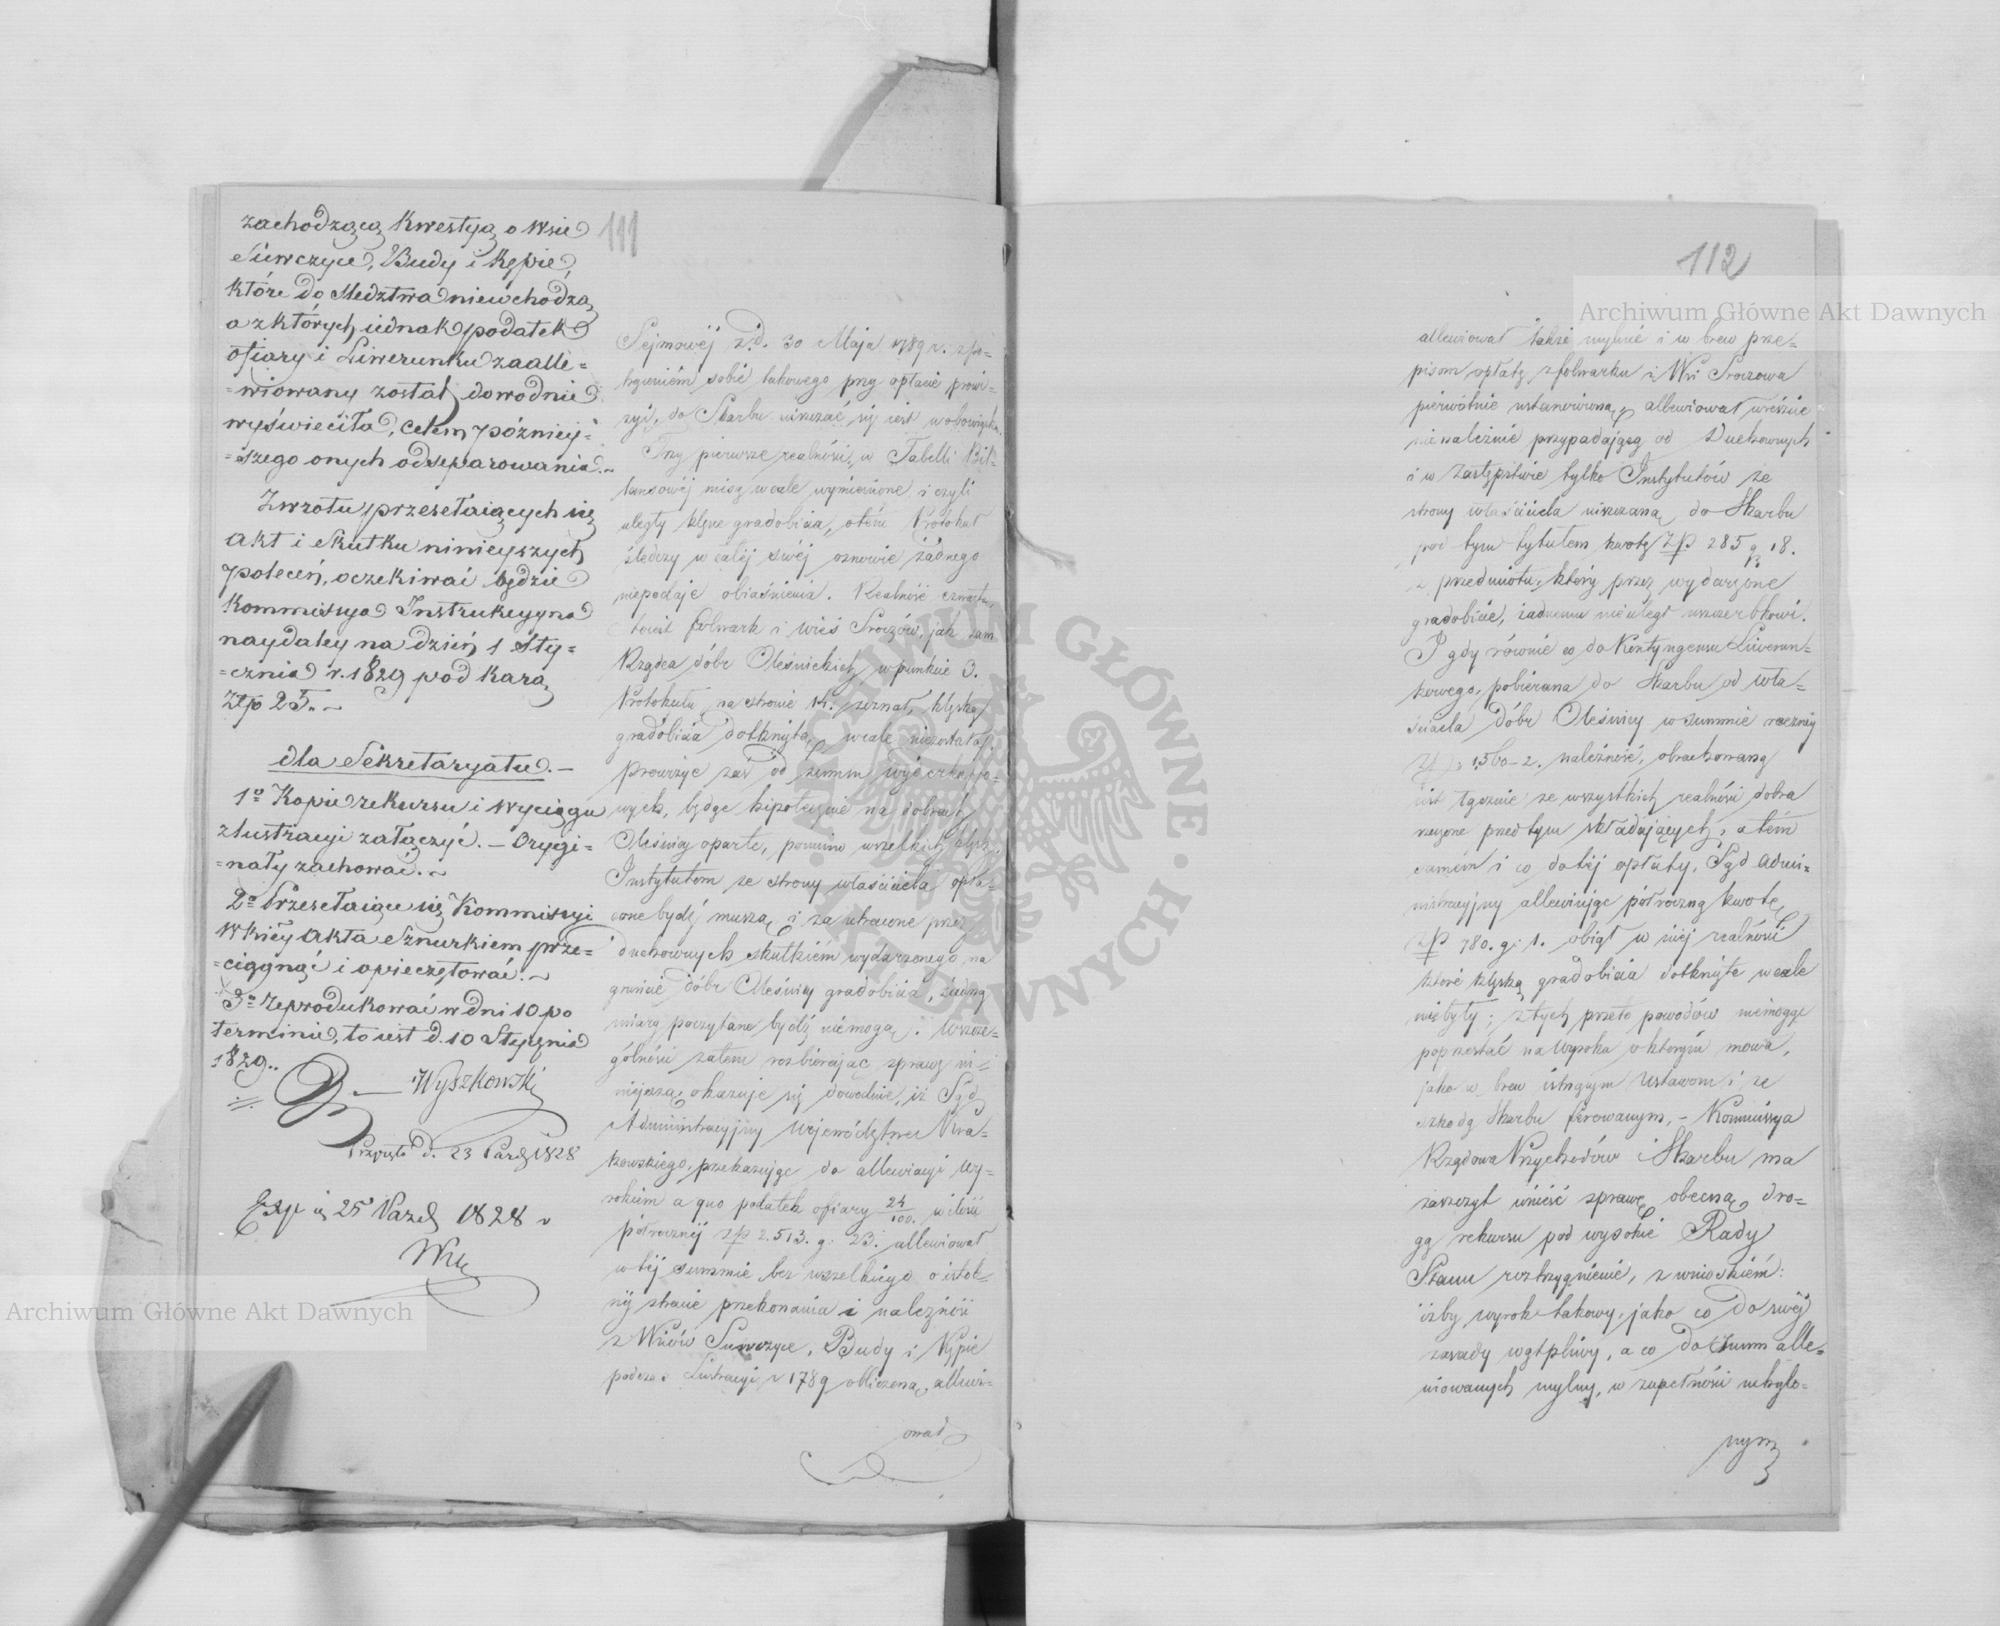 111
zachodzącą kwestyą o Wsie
Siewczyce, Budy i Kępie,
które do Medztwa niewchodzą
a z których iednak podatek
ofiary i Liwerunku zaalle=
=wiowany został, dowodnie
wyświeciła, celem późniey=
=szego onych odseparowania.
Zwrotu przesełaiących się
Akt i skutku ninieyszych
poleceń, oczekiwać będzie
Kommissya Instrukcyyna
naydaley na dzień 1 Sty=
=cznia r. 1829 pod karą
Złp 25.
dla Sekretaryatu.
1º Kopie rekursu i Wyciągu
z lustracyi załączyć. – Orygi=
=nały zachować.
2º Przesełaiące się Kommissyi
Wkiey Akta Sznurkiem prze=
=ciągnąć i opieczętować.
3º Zeprodukować w dni 10 po
terminie, to iest d. 10 Stycznia
1829.
Wyszkowski
d. 23 Paźd 1828
Exp d 25 Paźd 1828 r
Sejmowéj z d. 30 Maja 1789 r. z po-
trąceniem sobie takowego przy opłacie prowi-
zyi, do Skarbu uiszczać się jest w obowiązku.
Trzy pierwsze realności, w Tabelli Bil-
lansowéj niżéj wcale wymienione i czyli
uległy klęsce gradobicia, otém Protokuł
śledczy w całéj swéj osnowie żadnego
niepodaje obiaśnienia. Realność czwarta
folwark i wieś Sroczów, jak sam
Rządca dóbr Oleśnickich w punkcie 3.
Protokułu na stronie 14. zeznał, klęską
gradobicia dotknięta wcale niezostała,
prowizye zaś od summ wyderkafo-
wych, będąc hipotecznie na dobrach
Oleśnicy oparte, pomimo wszelkich klęsk,
Instytutom ze strony właściciela opła-
cone bydź muszą, i za utracone przez
duchownych skutkiem wydarzonego na
gruncie dóbr Oleśnicy gradobicia, żadną
miarą poczytane bydź niemogą. W szcze-
gólności zatem rozbierając sprawę ni-
niejszą, okazuje się dowodnie, iż Sąd
Administracyjny Województwa Kra-
kowskiego, przekazując do allewiacyi Wy-
rokiem a quo podatek ofiary 24/100. w ilości
półrocznéj złp 2.513. g. 23. allewiował
w téj summie bez wszelkiego o istot-
néj stracie przekonania i należność
z Wsiów Siewczyce, Budy i Kępie
podczas Lustracyi r 1789 obliczoną, allewi-
ował
112
allewiował także mylnie i w brew prze-
pisom opłatę z folwarku i Wsi Sroczowa
pierwotnie ustanowioną, allewiował wreszcie
nienależnie przypadającą od Duchownych
i w zastępstwie tylko Instytutów ze
strony właściciela uiszczaną do Skarbu
pod tym tytułem kwotę złp 285 g. 18.
z przedmiotu, który przez wydarzone
gradobicie, żadnemu nieuległ uszczerbkowi.
I gdy równie co do Kontyngensu Liwerun-
kowego, pobierana do Skarbu od wła-
ściciela dóbr Oleśnicy w summie roczney
Złp 1,560–2. należność, obrachowaną
jest łącznie ze wszystkich realności dobra
rzeczone przedtym składających, a tém
samém i co do téj opłaty, Sąd Admi-
nistracyjny allewiując półroczną kwotę
złp 780. g. 1. objął w niéj realności
które klęską gradobicia dotknięte wcale
niebyły; z tych przeto powodów niemogąc
poprzestać na Wyroku o którym mowa,
jako w brew istnącym Ustawom i ze
szkodą Skarbu ferowanym, – Kommissya
Rządowa Przychodów i Skarbu ma
zaszczyt wnieść sprawę obecną dro-
gą rekursu pod wysokie Rady
Stanu rozstrzygnienie, z wnioskiém:
iżby wyrok takowy, jako co do swéj
zasady wątpliwy, a co do summ alle-
wiowanych mylny, w zupełności uchylo-
nym
Archiwum Główne Akt Dawnych
Archiwum Główne Akt Dawnych
ARCHIWUM GŁÓWNE · AKT DAWNYCH ·